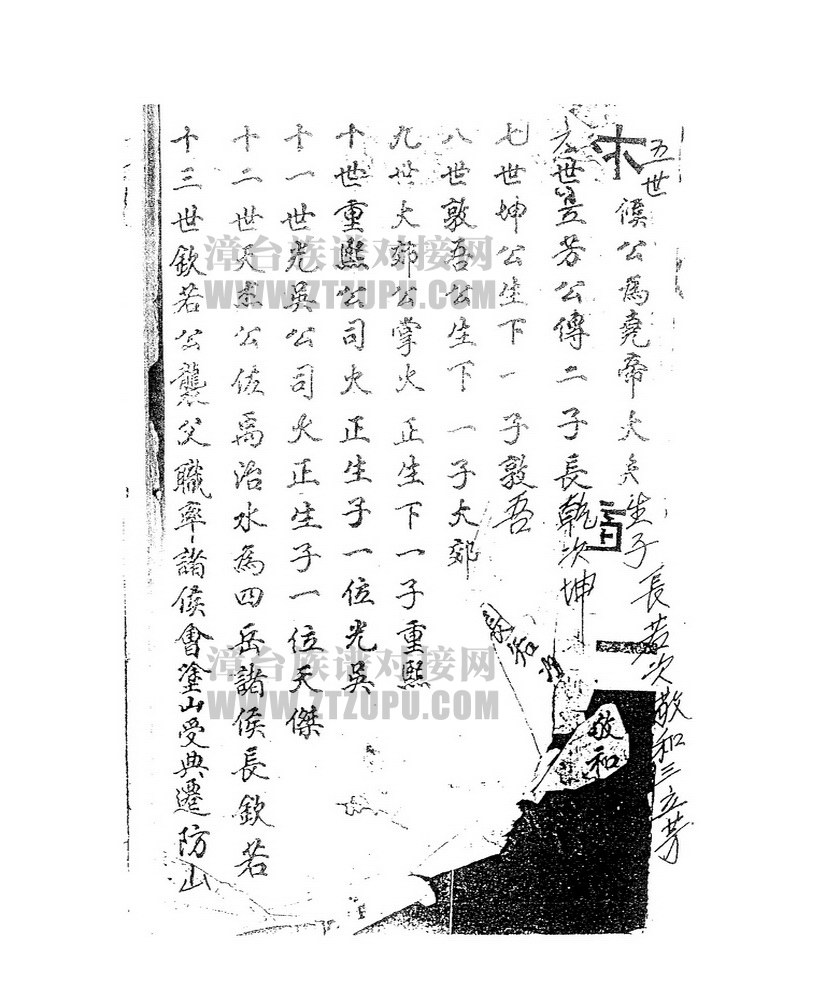 五世候公為堯帝大矣生子長若次敬和三立芳
六世昱芳公傳二子長乾次坤
七世坤公生下一子敦吾
八世敦吾公生下一子大郊
九世大郊公掌火正生下一子重熙
十世重熙公司火正生子一位光吳
十一世光吳公司火正生子一位天傑
十二世天杰公佐禹治水為四岳諸侯長欽若
十三世欽若公襲父職率諸侯會塗山受典遷防山
敬和
漳台族谱对接网
WWW.ZTZUPU.COM
漳台族谱对接网
WWW.ZTZUPU.COM